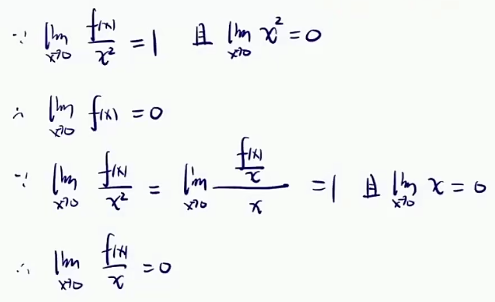 ∵ lim_{x→0} f(x)/x² = 1 且 lim_{x→0} x² = 0
∴ lim_{x→0} f(x) = 0
∵ lim_{x→0} f(x)/x² = lim_{x→0} (f(x)/x)/x = 1 且 lim_{x→0} x = 0
∴ lim_{x→0} f(x)/x = 0